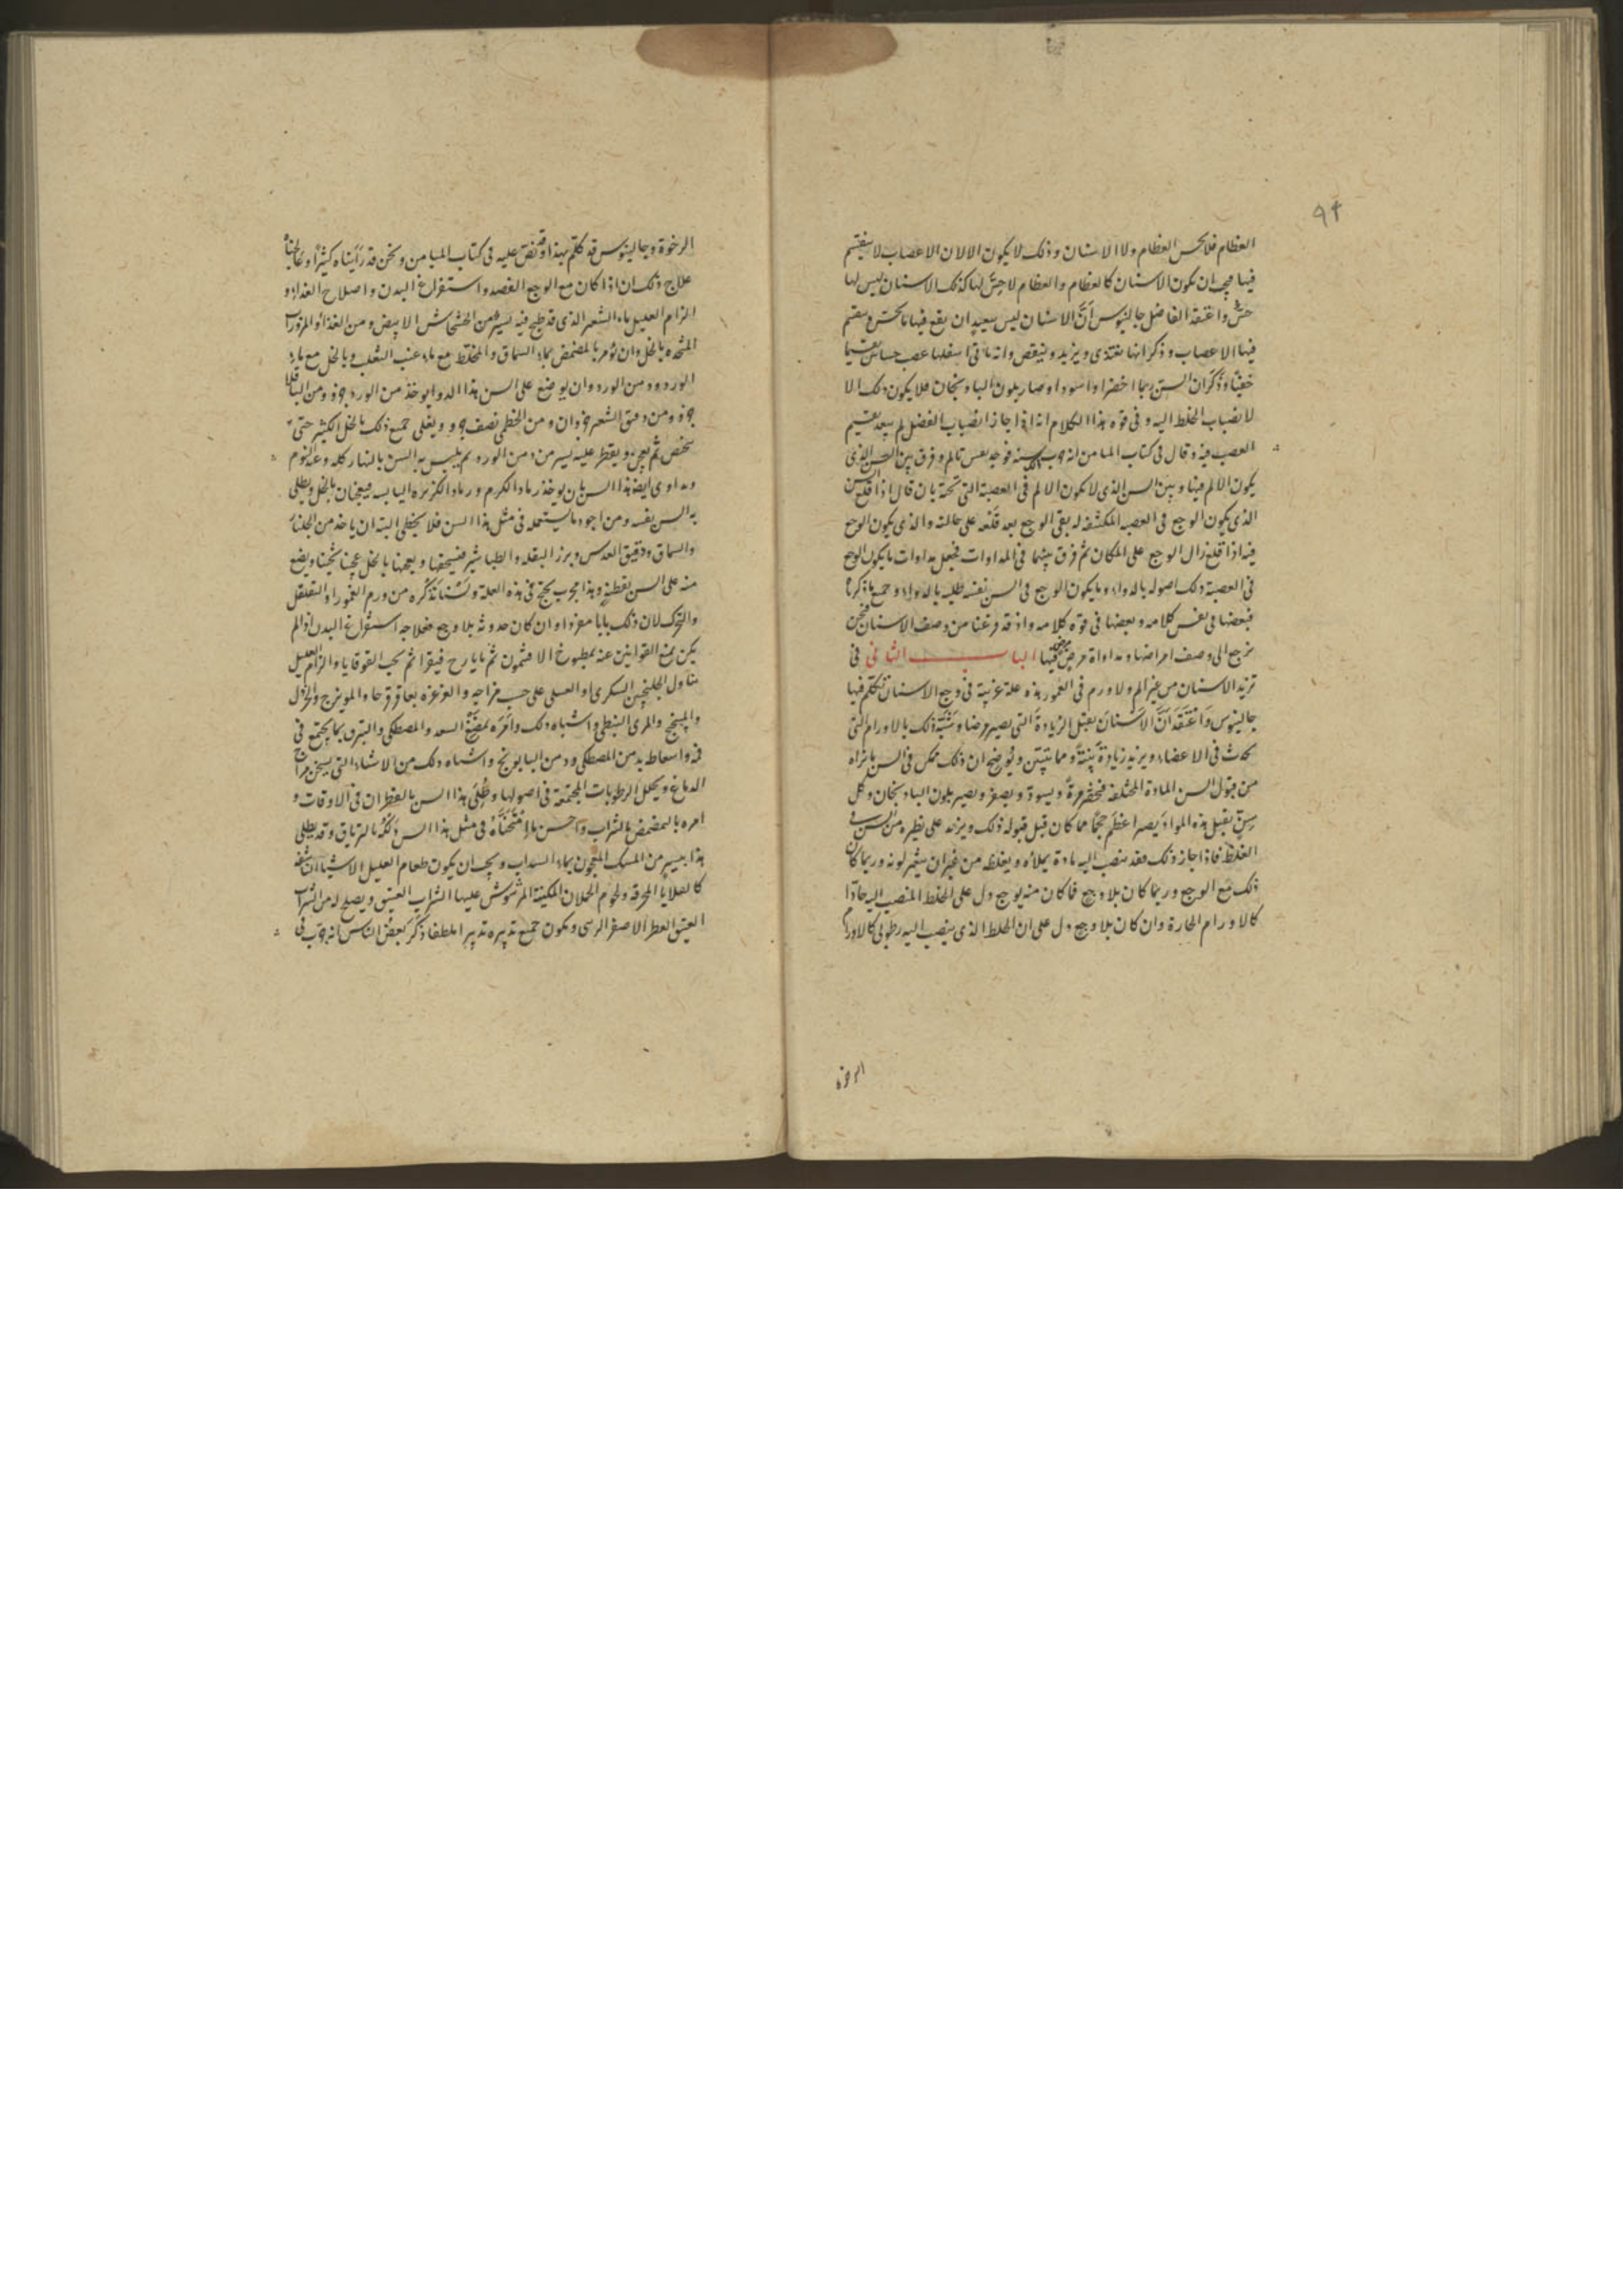 ٩۴
العظام فلا يحس العظام ولا الاسنان وذلك لا يكون الا لان الاعصاب لا ينقسم
فيها فيجب ان يكون الاسنان كالعظام والعظام لا حِسَّ لها كذلك الاسنان ليس لها
حسٌّ واعتقد الفاضل جالينوس أنَّ الاسنان ليس ببعيد ان يقع فيها ما يحسّ وينقسم
فيها الاعصاب وذكر انها تغتذى ويزيد وينقص وانه ياتى اسفلها عصب حساس
خفيًّا وذكر ان السنّ ربما اخضرّ او اسودّ او صار بلون الباذنجان فلا يكون ذلك الا
لانصباب الخلط اليه وفى قوة هذا الكلام انه اذا جاز انصباب الفضل لم يبعد تقسيم
العصب فيه وقال فى كتاب الميامن انه وبين السن الذى
يكون الالم فيها وبين السن الذى لا يكون الالم فى العصبة التى تحته بان قال اذا قلع السن
الذى يكون الوجع فى العصبة المكتنفة له بقى الوجع بعد قلعه على حالته والذى يكون الوجع
فيه اذا قلع زال الوجع على المكان ثم فرق بينهما فى المداوات فجعل مداوات ما يكون الوجع
فى العصبة دلك اصوله بالدواء وما يكون الوجع فى السن نفسه طليه بالدواء وجميع ما ذكرنا
فبعضها فى نفس كلامه وبعضها فى قوة كلامه واذ قد فرغنا من وصف الاسنان فنحن
نرجع الى وصف امراضها ومداواة مرض فيها الباب الثانى فى
تزيد الاسنان من غير الم ولا ورم فى العمور هذه علة غريبة فى وجع الاسنان تكلم فيها
جالينوس وَاعتَقَدَ أنَّ الأسنانَ يقبل الزيادةَ التى يصير مرضا وشَبَّهَ ذلك بالاورام التى
تحدث فى الاعضاء ويزيد زيادةً بيّنةً ومما يتبيّن ويُوضح ان ذلك ممكن فى السن ما نراه
من قبول السن المادة المختلفة فيخضر مرةً ويسودّ ويصفر ويصير بلون الباذنجان وكل
سِنّ يقبل هذه الموادّ يصير اعظَم حجمًا مما كان قبل قبوله ذلك ويزيد على نظيره من السن فى
الغلظ فاذا جاز ذلك فقد ينصب اليه مادة يملأه ويغلظ من غير ان يتغير لونه وربما كان
ذلك مع الوجع وربما كان بلا وجع فما كان منه بوجع دل على الخلط المنصب اليه حادًّا
كالاورام الحارة وان كان بلا وجع دل على ان الخلط الذى ينصب اليه رطوبى كالاورام
الرخوة
الرخوة وجالينوس قد تكلم بهذا وقد نصّ عليه فى كتاب الميامن ونحن قد رَأيناه كثيرًا وعَالجناهُ
علاج ذلك ان اذا كان مع الوجع الفصد واستفراغ البدن واصلاح الغذاء و
الزام العليل ماء الشعير الذى قد طبخ فيه يسير من الخشخاش الابيض ومن الغذاء المزورات
المتخذه بالخل وان يؤمر بالمضمض بماء السماق والمختلط مع ماء عنب الثعلب وبالخل مع ماء
الورد ودهن الورد وان يوضع على السن هذا الدوا يوخذ من الورد جزو ومن الباقلا
جزو ومن دقيق الشعير جزوان ومن الخطمى نصف جزو ويغلى جميع ذلك بالخل الكثير حتى
ثم يعجن ويقطر عليه يسير من دهن الورد ثم يلبس به السن بالنهار كله وعند النوم
ومداوى ايضا هذا السن بان يوخذ رماد الكرم ورماد الكزبرة اليابسه فيعجنان بالخل ويطلى
به السن نفسه ومن اجود ما يستعمله فى مثل هذا السن فلا يخطى البته ان ياخذ من الجلنار
والسماق ودقيق العدس وبزر البقله والطباشير فيسحقها ويعجنها بالخل عجنا ثخينا ويضع
منه على السن بقطنه وهذا مجرب ينجح فى هذه العلة ولَسنَا نذكُره من ورم العمور او التقلقل
والتحرك لان ذلك بابا مفردا وان كان حدوثه بلا وجع فعلاجه استفراغ البدن اذا لم
يكن يمنع القوانين عنه بمطبوخ الافتيمون ثم بايارج فيقرا ثم بحب القوقايا والزام العليل
تناول الجلنجبين السكرى او العسلى على حسب مزاجه والغرغرة بعاقرقرحا والمويزج والخردل
والميبختج والمرى النبطى واشباه ذلك وامُره بمضغ السعد والمصطكى والتبزق بما يجتمع فى
فمه واسعاطه بدهن المصطكى ودهن البابونج واشباه ذلك من الاشياء التى يسخن مزاج
الدماغ ويحلل الرطوبات المجتمعة فى اصولها وطُلى هذا السن بالقطران فى الاوقات و
امره بالمضمض بالشراب واحسن ما امتَحَنّاهُ فى مثل هذا السن دَلكُهُ بالترياق وقد يطلى
هذا بيسير من المسك المعجون بماء السداب ويجب ان يكون طعام العليل الاشياء الناشفه
كالقلايا المحرقه ولحوم الحملان المكببة المرشوش عليها الشراب العتيق ويصلح له من الشراب
العتيق العطر الاصفر الريحى ويكون جميع تدبيره تدبيرا ملطفا ذكَر بعضُ الناس انه جرب فى